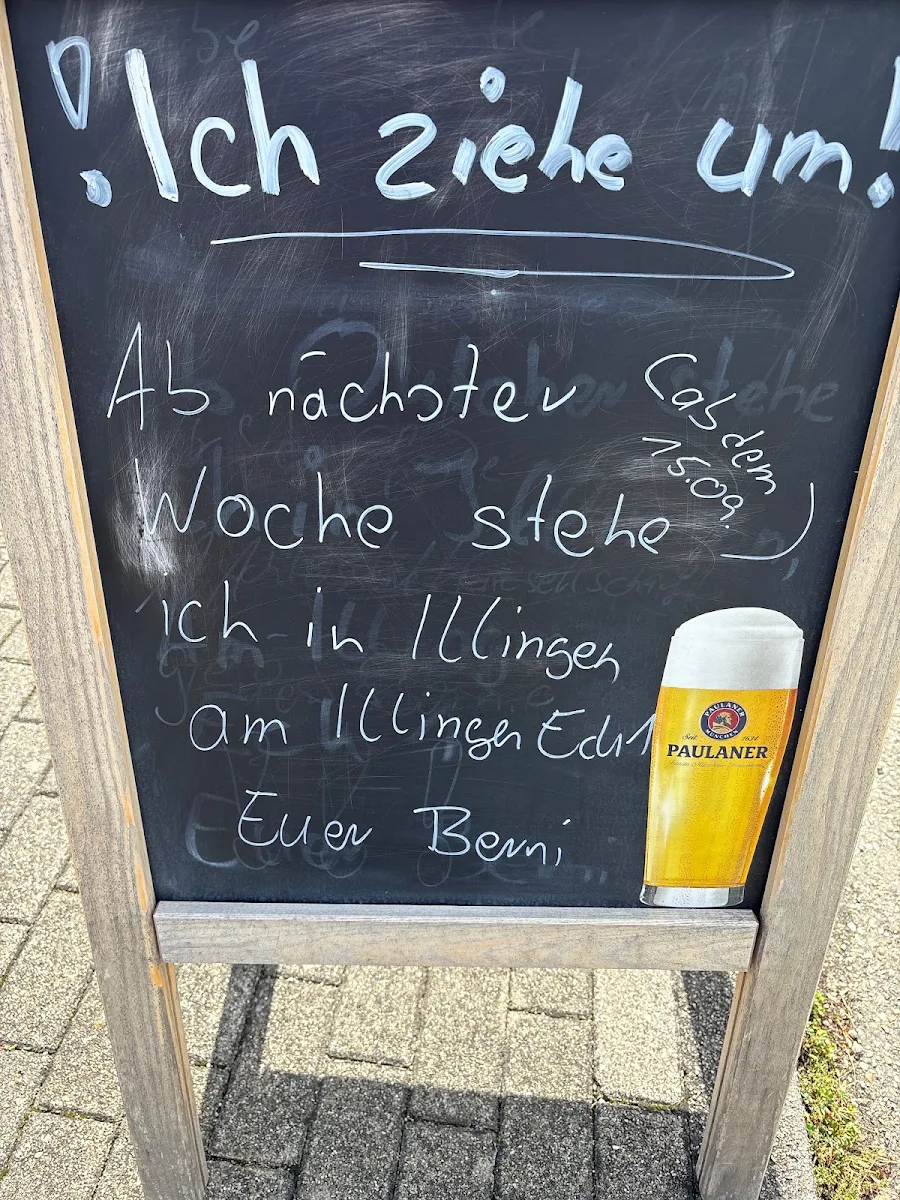 !Ich ziehe um!
Ab nächster (ab dem
15.09.)
Woche stehe
ich in Illingen
am Illinger Eck!
Euer Berni
PAULANER
MÜNCHEN
Seit 1634
PAULANER